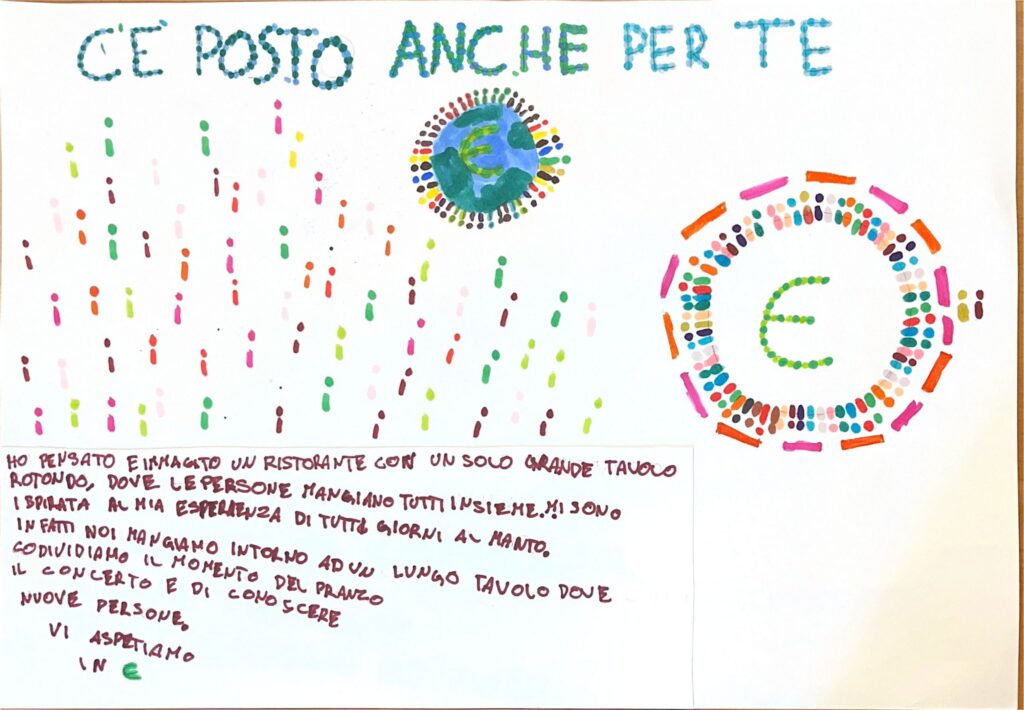 C'È POSTO ANCHE PER TE
Є
Є
HO PENSATO E IMMAGITO UN RISTORANTE CON UN SOLO GRANDE TAVOLO
ROTONDO, DOVE LE PERSONE MANGIANO TUTTI INSIEME. MI SONO
ISPIRATA AL MIA ESPERIENZA DI TUTTI GIORNI AL MANTO.
INFATTI NOI MANGIAMO INTORNO AD UN LUNGO TAVOLO DOVE
CODIVIDIAMO IL MOMENTO DEL PRANZO
IL CONCERTO E DI CONOSCERE
NUOVE PERSONE.
VI ASPETIAMO
IN Є